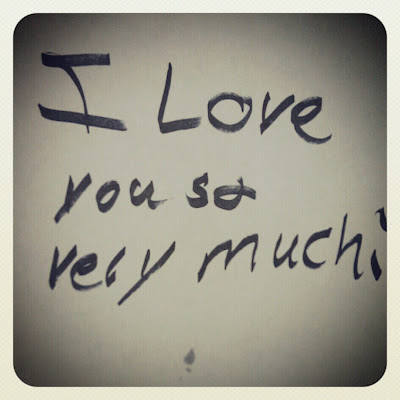 I Love
you so
very much!